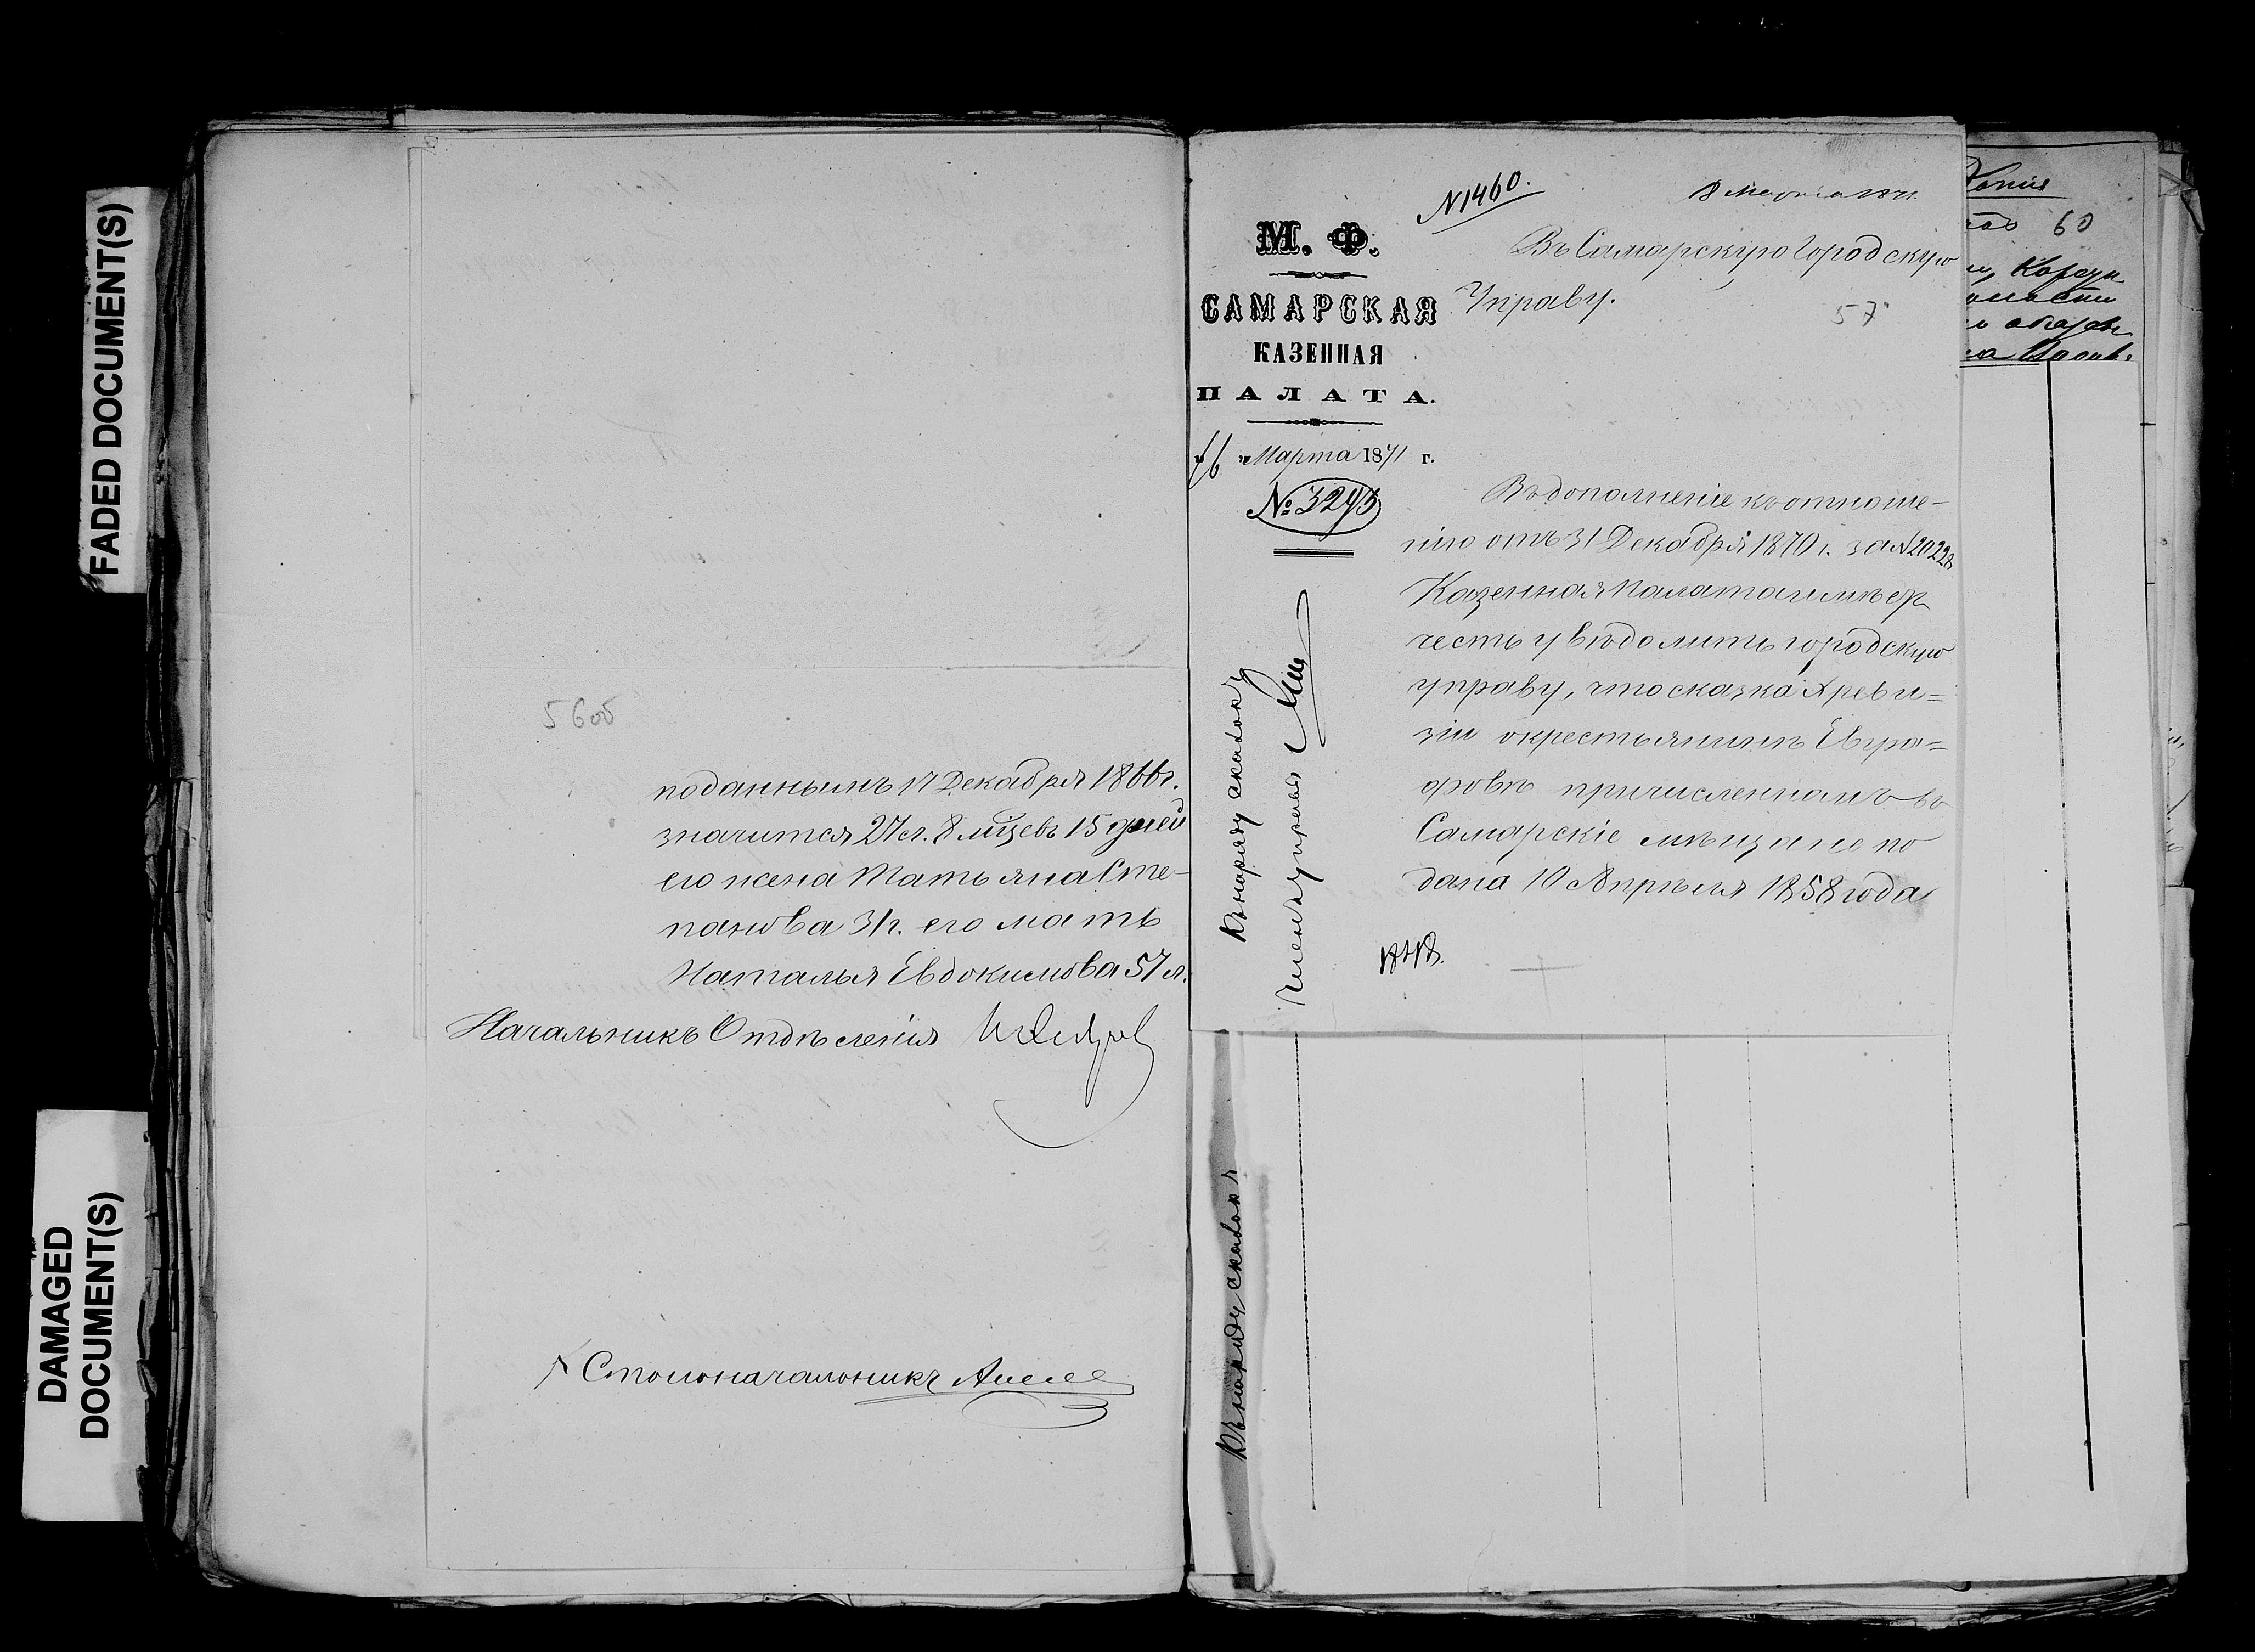 FADED DOCUMENT(S)
DAMAGED
DOCUMENT(S)
56об
поданнымъ 17 Декабря 1866г.
значится 27 л. 8 м̃цевъ 15 дней
его жена Татьяна Сте-
панова 31г. его мать
Наталья Евдокимова 57 л.
Начальникъ Отдѣленія
Столоначальникъ
N1460.
8 Марта 1871.
М. Ф.
САМАРСКАЯ
КАЗЕННАЯ
ПАЛАТА.
"6" Марта 1871 г.
№ 3293
Въ Самарскую Городскую
Управу.
57
Въ дополненіе къ отноше-
нію отъ 31 Декабря 1870 г. за N20228
Казенная Палата имѣетъ
честь увѣдомить городскую
управу, что сказка X реви=
зіи о крестьянинѣ Евгра=
фовѣ причисленномъ въ
Самарскіе мѣщане по
дана 10 Апрѣля 1858 года
Къ наряду сказокъ
Членъ управы
Къ наряду сказокъ
Копія
60